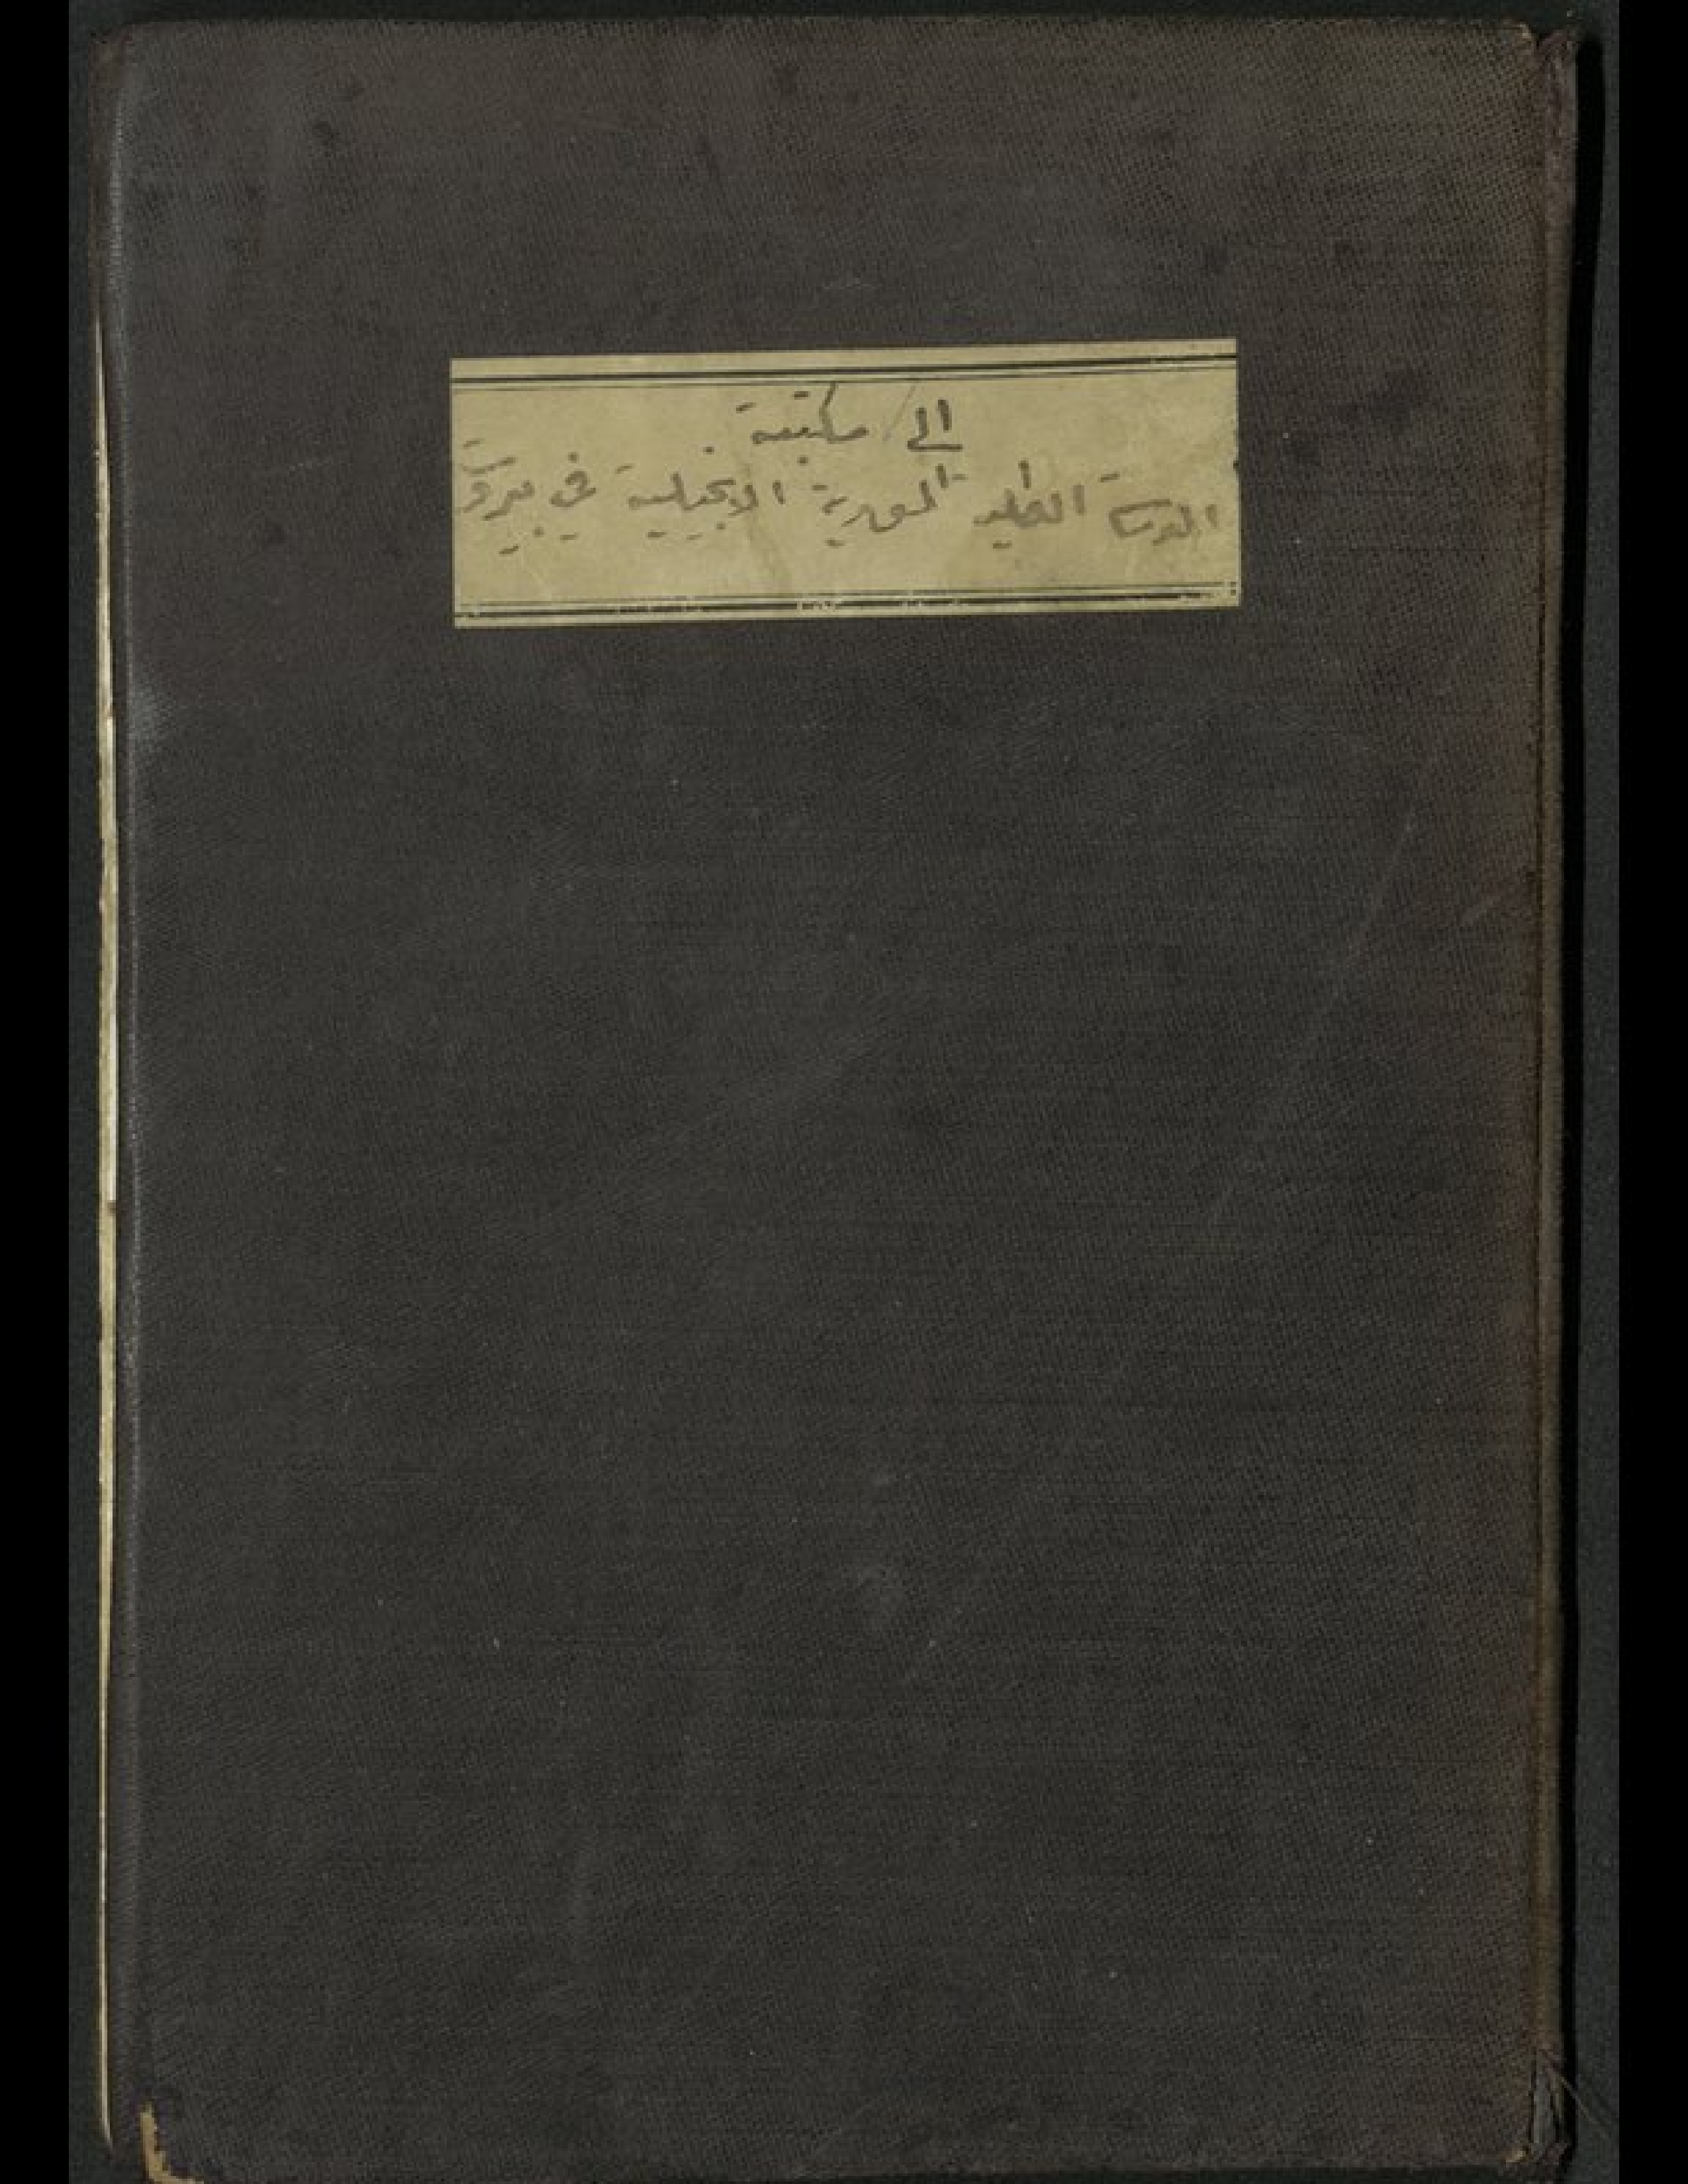 الى مكتبة
المدرسة الكلية السورية الانجيلية في بيروت